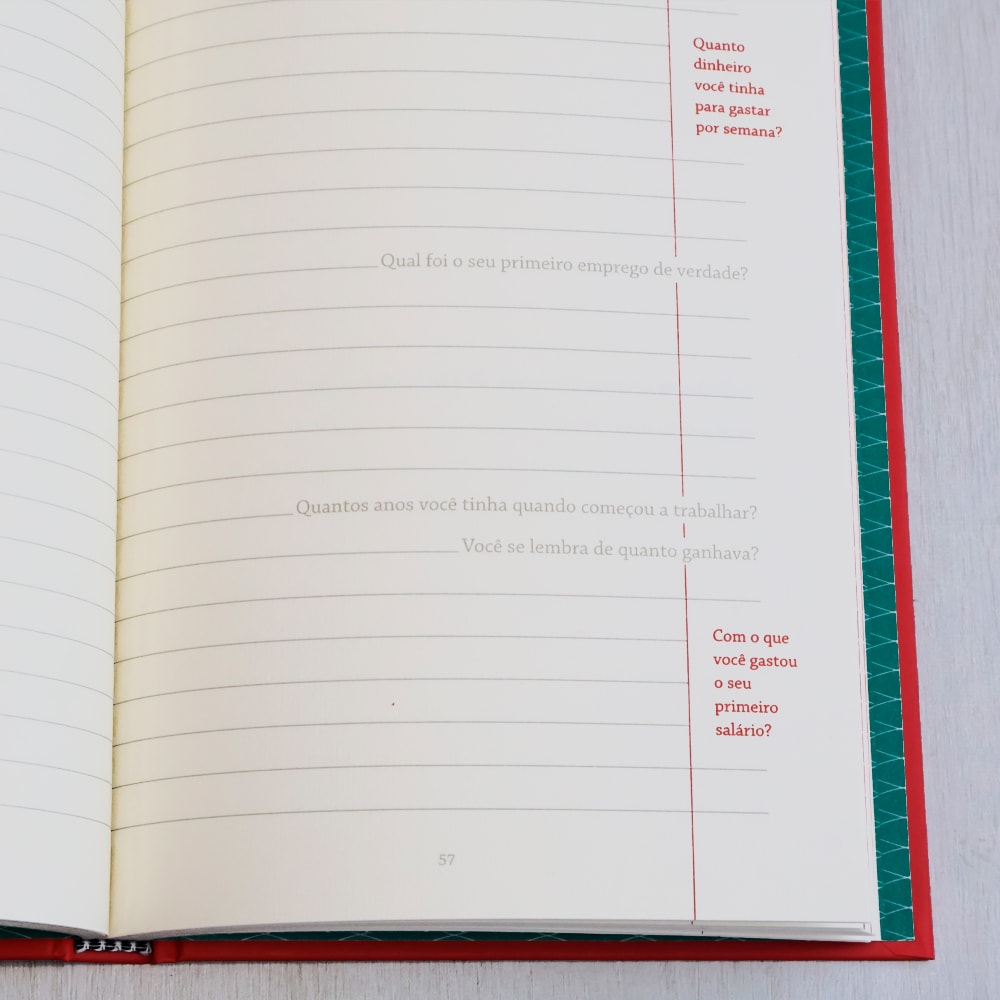 Quanto
dinheiro
você tinha
para gastar
por semana?
Qual foi o seu primeiro emprego de verdade?
Quantos anos você tinha quando começou a trabalhar?
Você se lembra de quanto ganhava?
Com o que
você gastou
o seu
primeiro
salário?
57